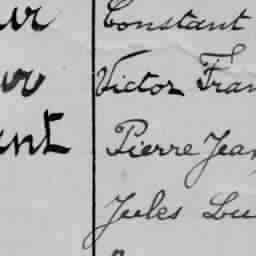 Constant
Victor Fran
Pierre Jean
Jules Lu